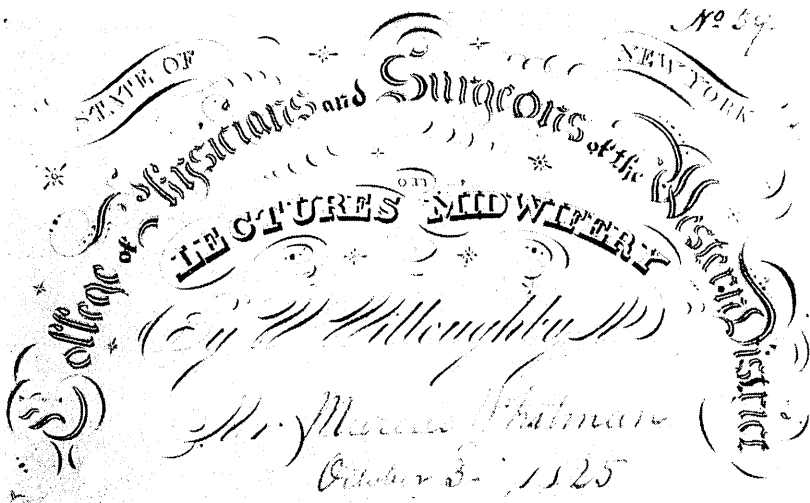 No 59.
STATE OF NEW YORK
College of Physicians and Surgeons of the Western District
LECTURES on MIDWIFERY
By W Willoughby M
Mr. Marcus Whitman
October 3- 1825